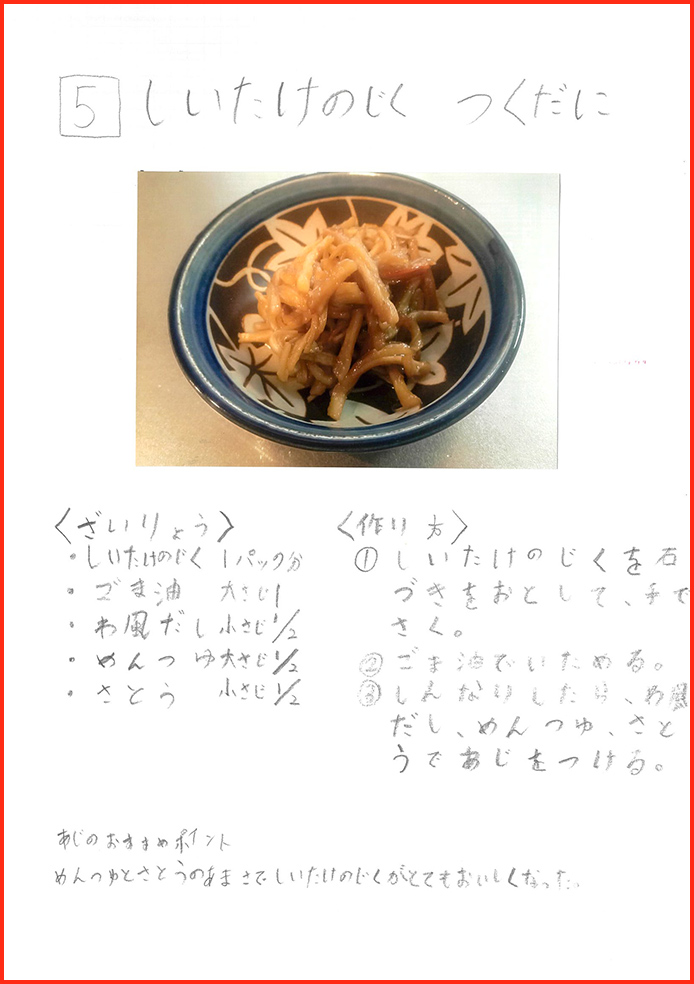 5 しいたけのじく つくだに
〈ざいりょう〉
・しいたけのじく 1パック分
・ごま油 大さじ1
・わ風だし 小さじ1/2
・めんつゆ 大さじ1/2
・さとう 小さじ1/2
〈作り方〉
①しいたけのじくを石
づきをおとして、手で
さく。
②ごま油でいためる。
③しんなりしたら、わ風
だし、めんつゆ、さと
うであじをつける。
あじのおすすめポイント
めんつゆとさとうのあまさでしいたけのじくがとてもおいしくなった。